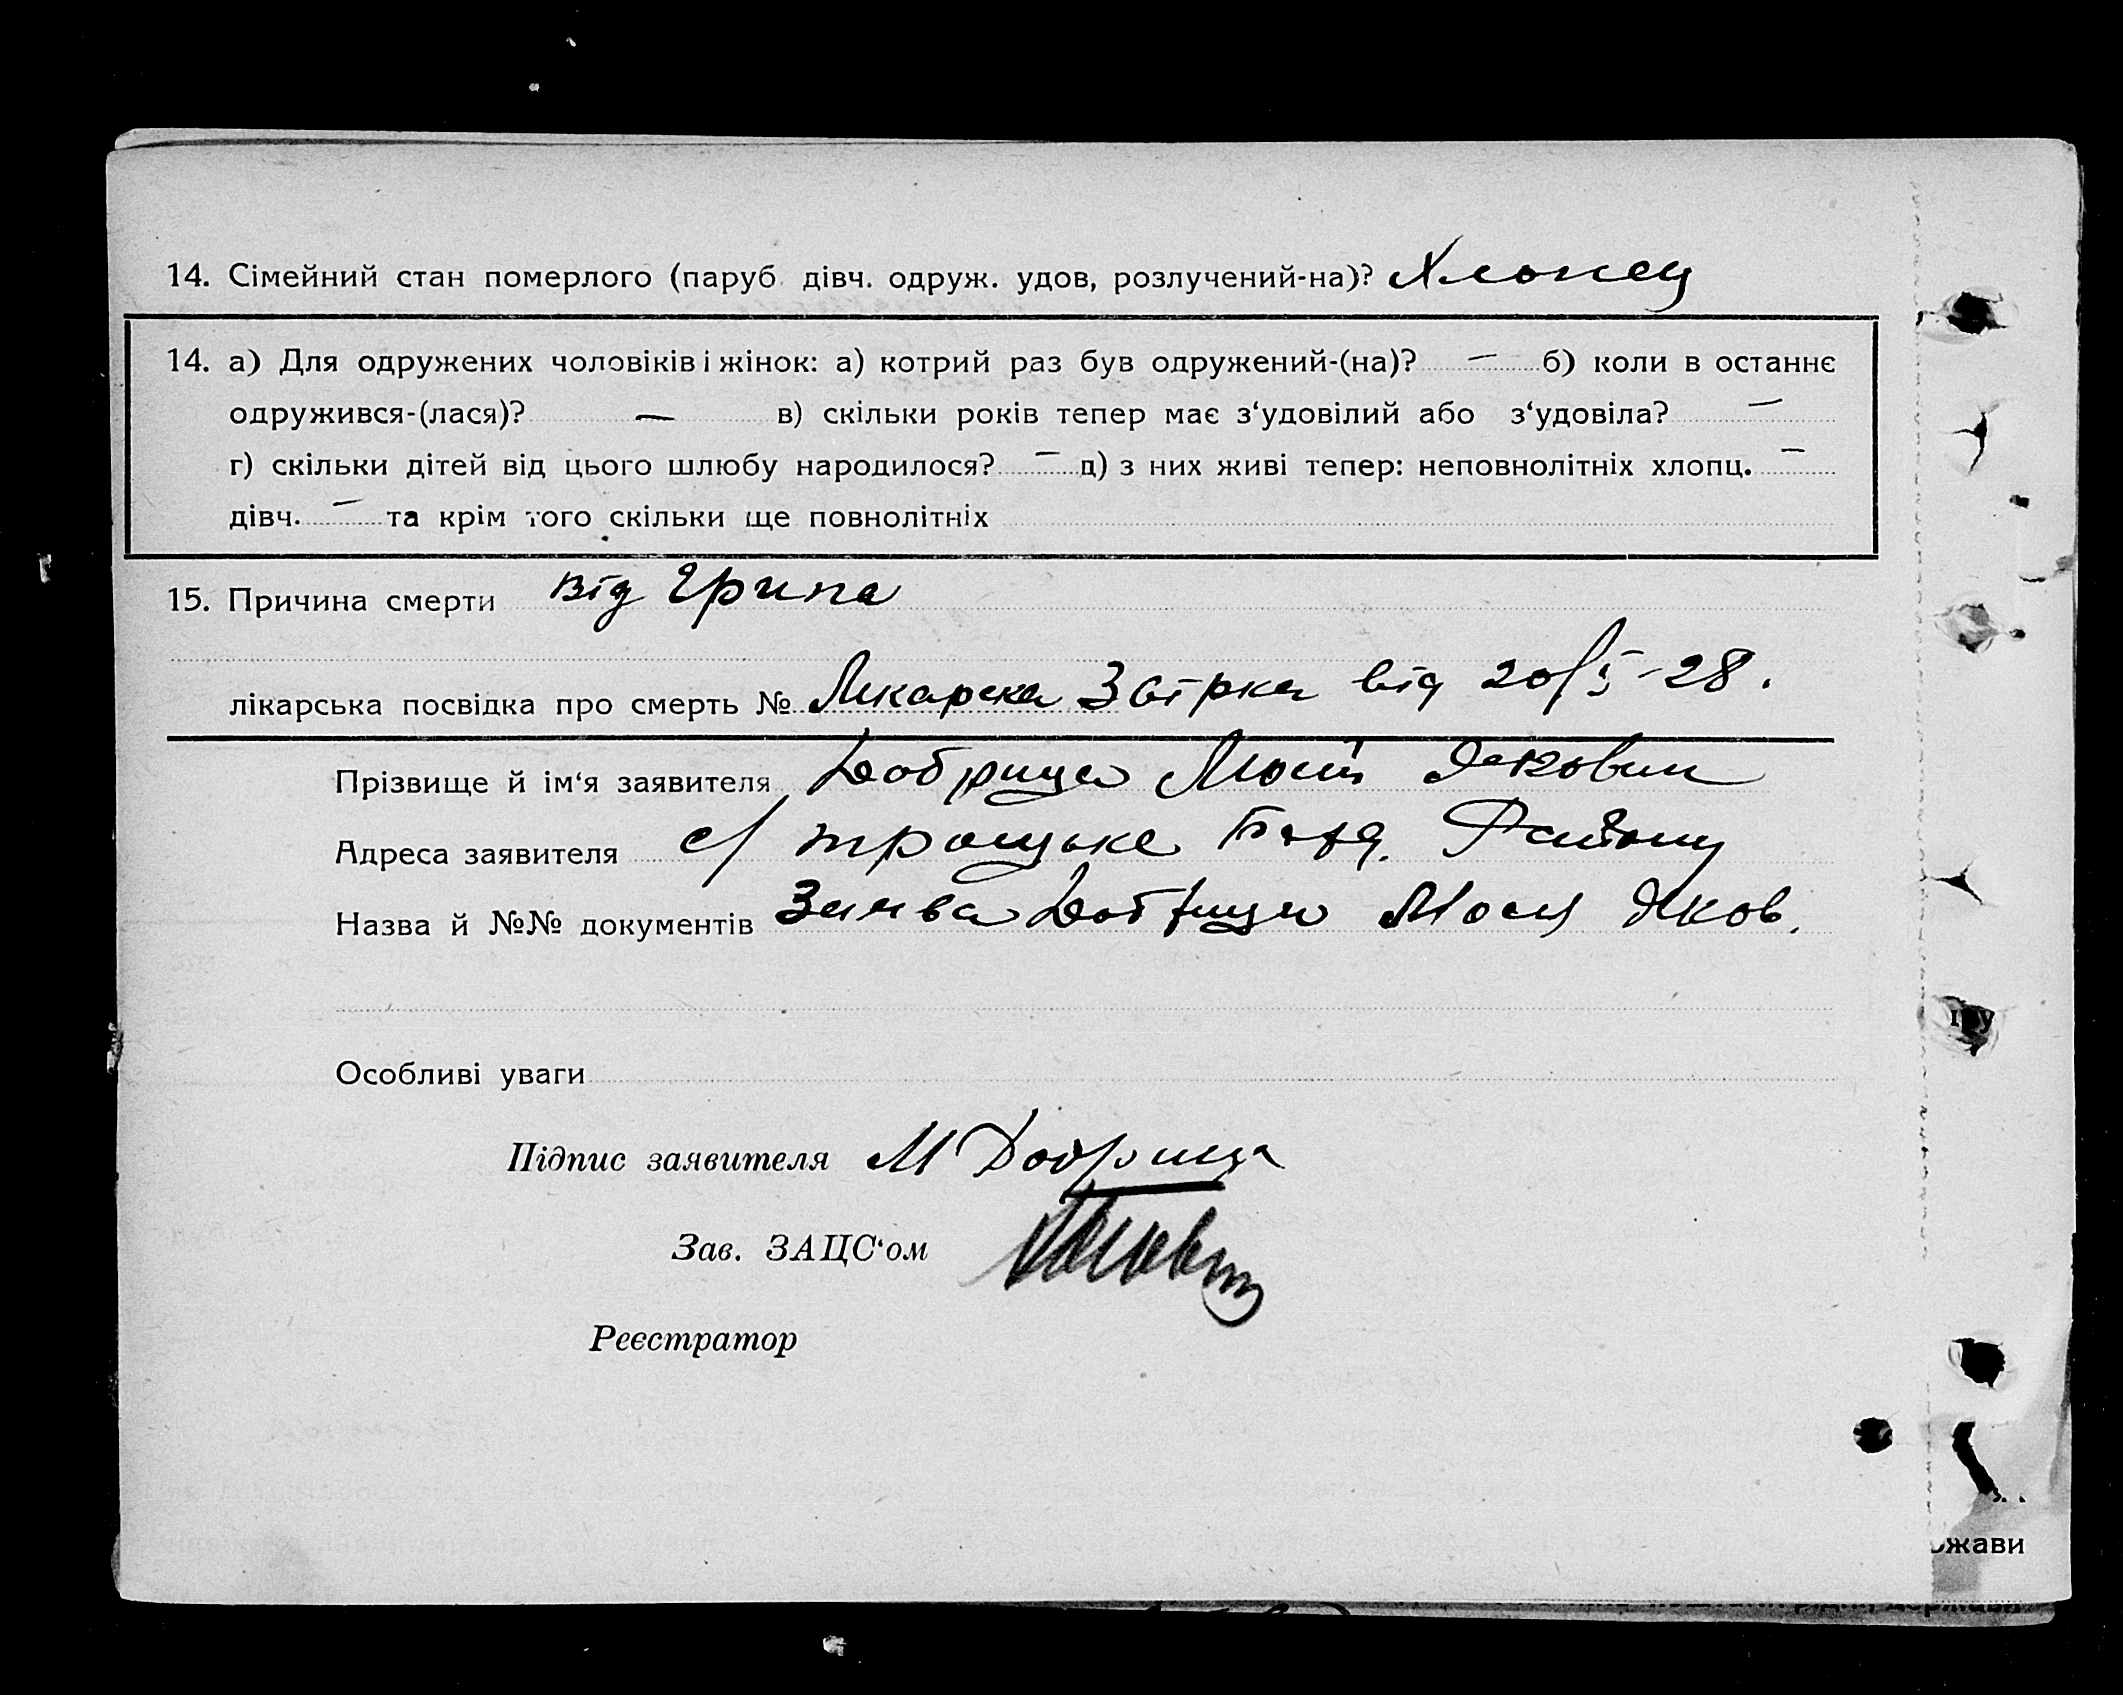 14. Сімейний стан померлого (паруб. дівч. одруж. удов, розлучений-на)? Хлопец
14. а) Для одружених чоловіків і жінок: а) котрий раз був одружений-(на)? — б) коли в останнє
одружився-(лася)? — в) скільки років тепер має з‘удовілий або з‘удовіла? —
г) скільки дітей від цього шлюбу народилося? — д) з них живі тепер: неповнолітніх хлопц. —
дівч. — та крім того скільки ще повнолітніх
15. Причина смерти від Грипа
лікарська посвідка про смерть № Лікарска Звірка від 20/5-28.
Прізвище й ім‘я заявителя Добрица Мосій Якович
Адреса заявителя с/ троцьке Району
Назва й №№ документів Заява Добрици Мосія Яков.
Особливі уваги
Підпис заявителя М Добрица
Зав. ЗАЦС‘ом
Реєстратор
іру
ржави